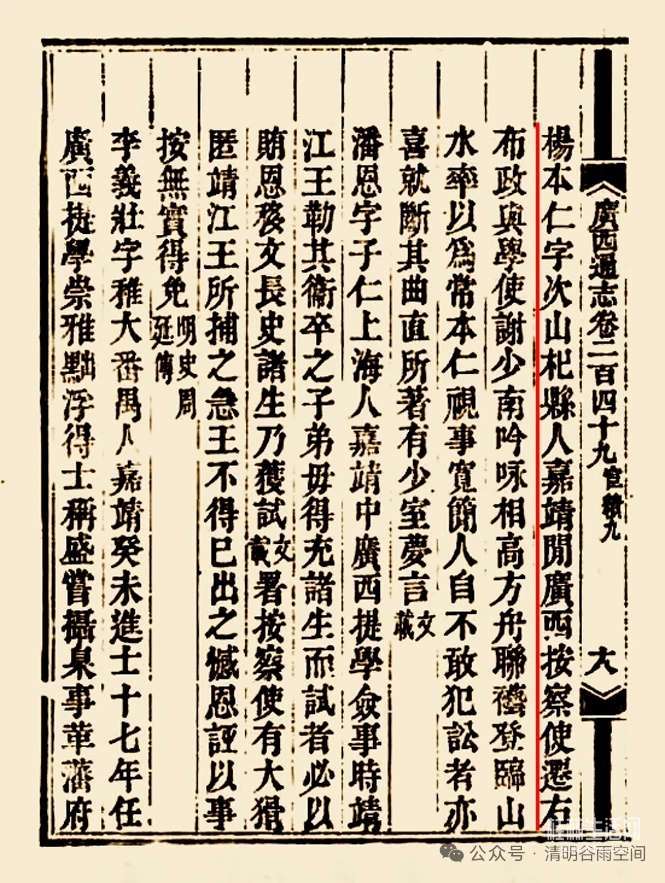 廣西通志卷二百四十九 宦績九
楊本仁字次山杞縣人嘉靖閒廣西按察使遷右
布政與學使謝少南吟咏相高方舟聯登臨山
水率以爲常本仁視事寬簡人自不敢犯訟者亦
喜就斷其曲直所著有少室夢言文載
潘恩字子仁上海人嘉靖中廣西提學僉事時靖
江王勒其衞卒之子弟毋得充諸生而試者必以
賄恩移文長史諸生乃獲試文載署按察使有大猾
匿靖江王所捕之急王不得已出之憾恩誣以事
按無實得免明史周延傳
李義壯字雅大番禺人嘉靖癸未進士十七年任
廣西提學崇雅黜浮得士稱盛嘗攝臬事革藩府
桂林生活网
公众号·清明谷雨空间